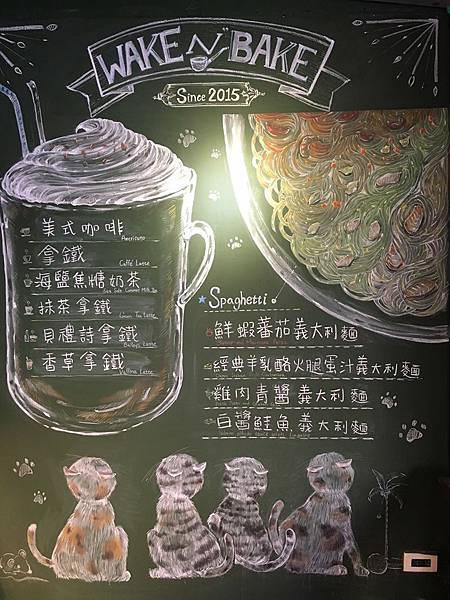 WAKE N' BAKE
Since 2015
美式咖啡
Americano
拿鐵
Caffé Latte
海鹽焦糖奶茶
Sea Salt Caramel Milk Tea
抹茶拿鐵
Green Tea Latte
貝禮詩拿鐵
Baileys Latte
香草拿鐵
Vanilla Latte
Spaghetti
鮮蝦蕃茄義大利麵
經典羊乳酪火腿蛋汁義大利麵
雞肉青醬義大利麵
白醬鮭魚義大利麵